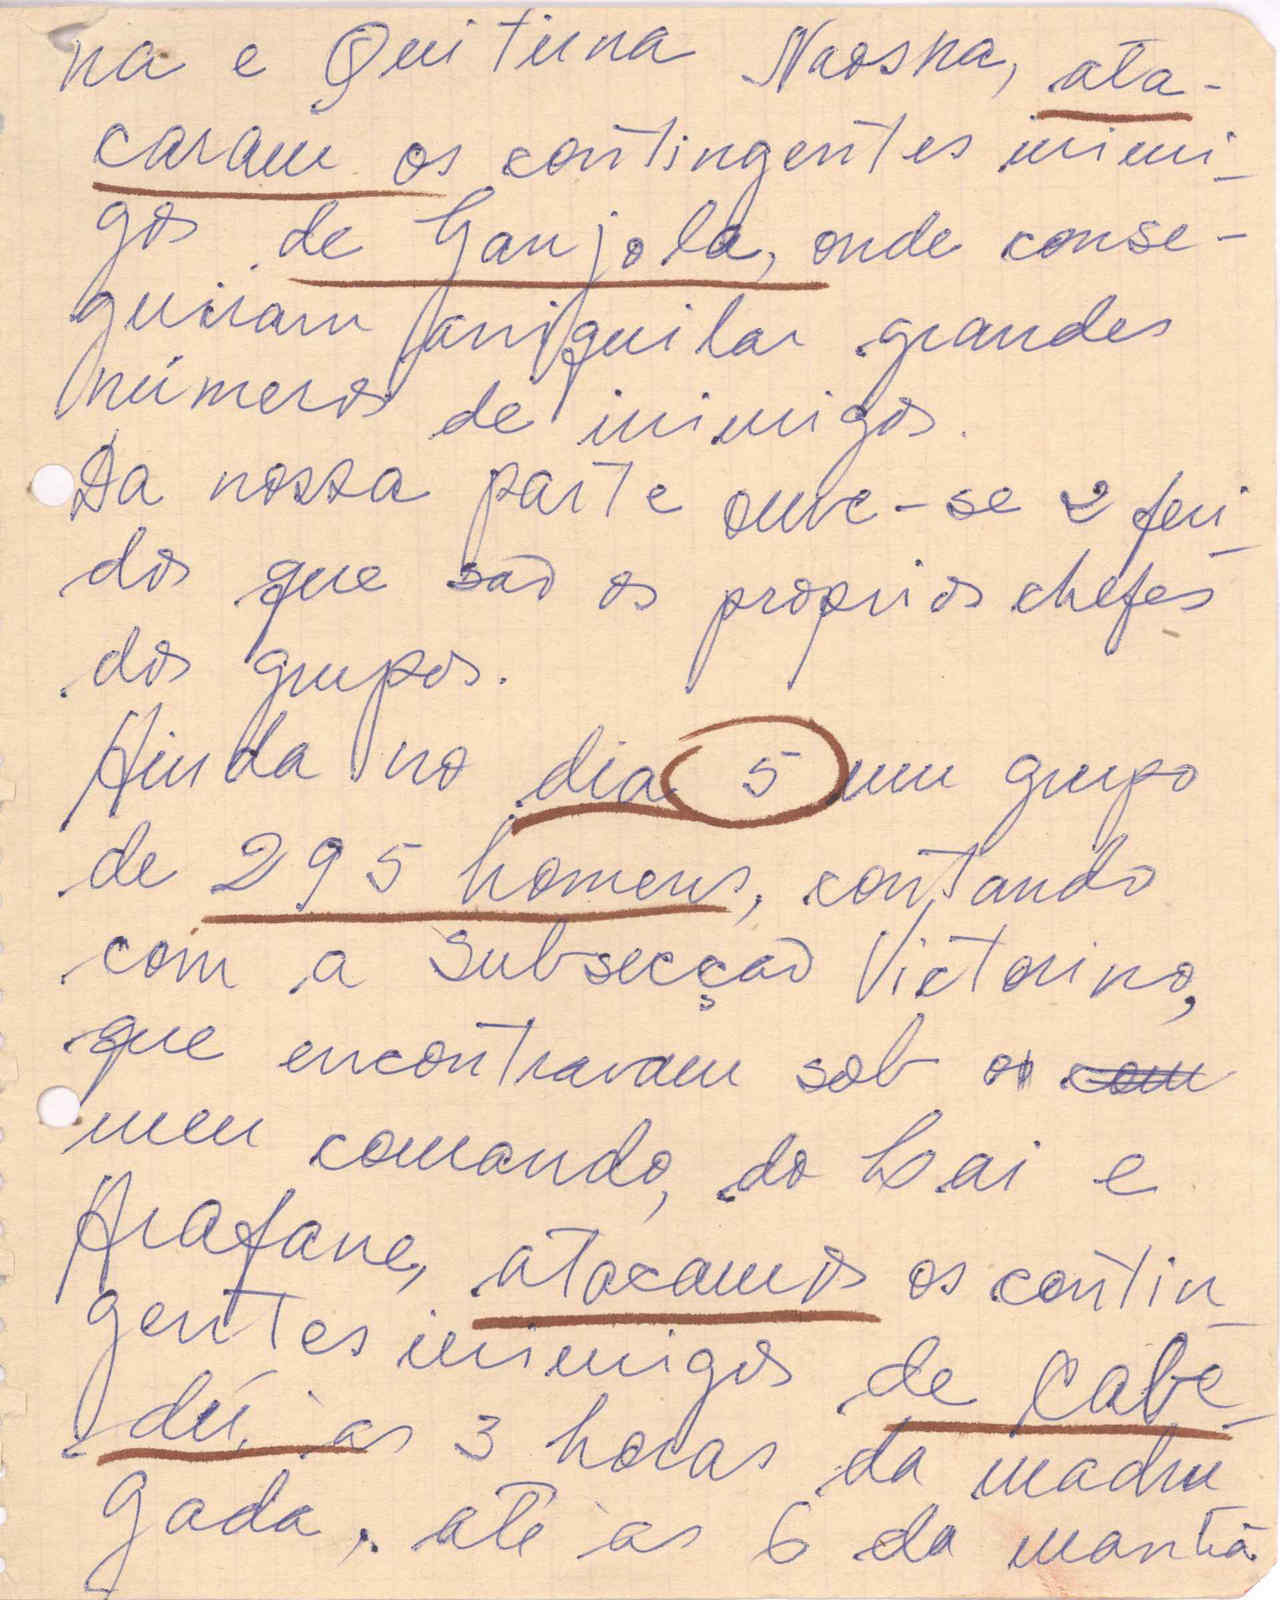 na e Quituna Naosna, ata-
caram os contingentes inimi-
gos de Ganjola, onde conse-
guiram aniquilar grandes
números de inimigos.
Da nossa parte ouve-se 2 feri-
dos que são os proprios chefes
dos grupos.
Ainda no dia 5 um grupo
de 295 homens, contando
com a Subsecção Victorino,
que encontravam sob o com
meu comando, do Lai e
Arafane, atacamos os contin-
gentes inimigos de Cabe-
dú, às 3 horas da madru
gada, até às 6 da manhã